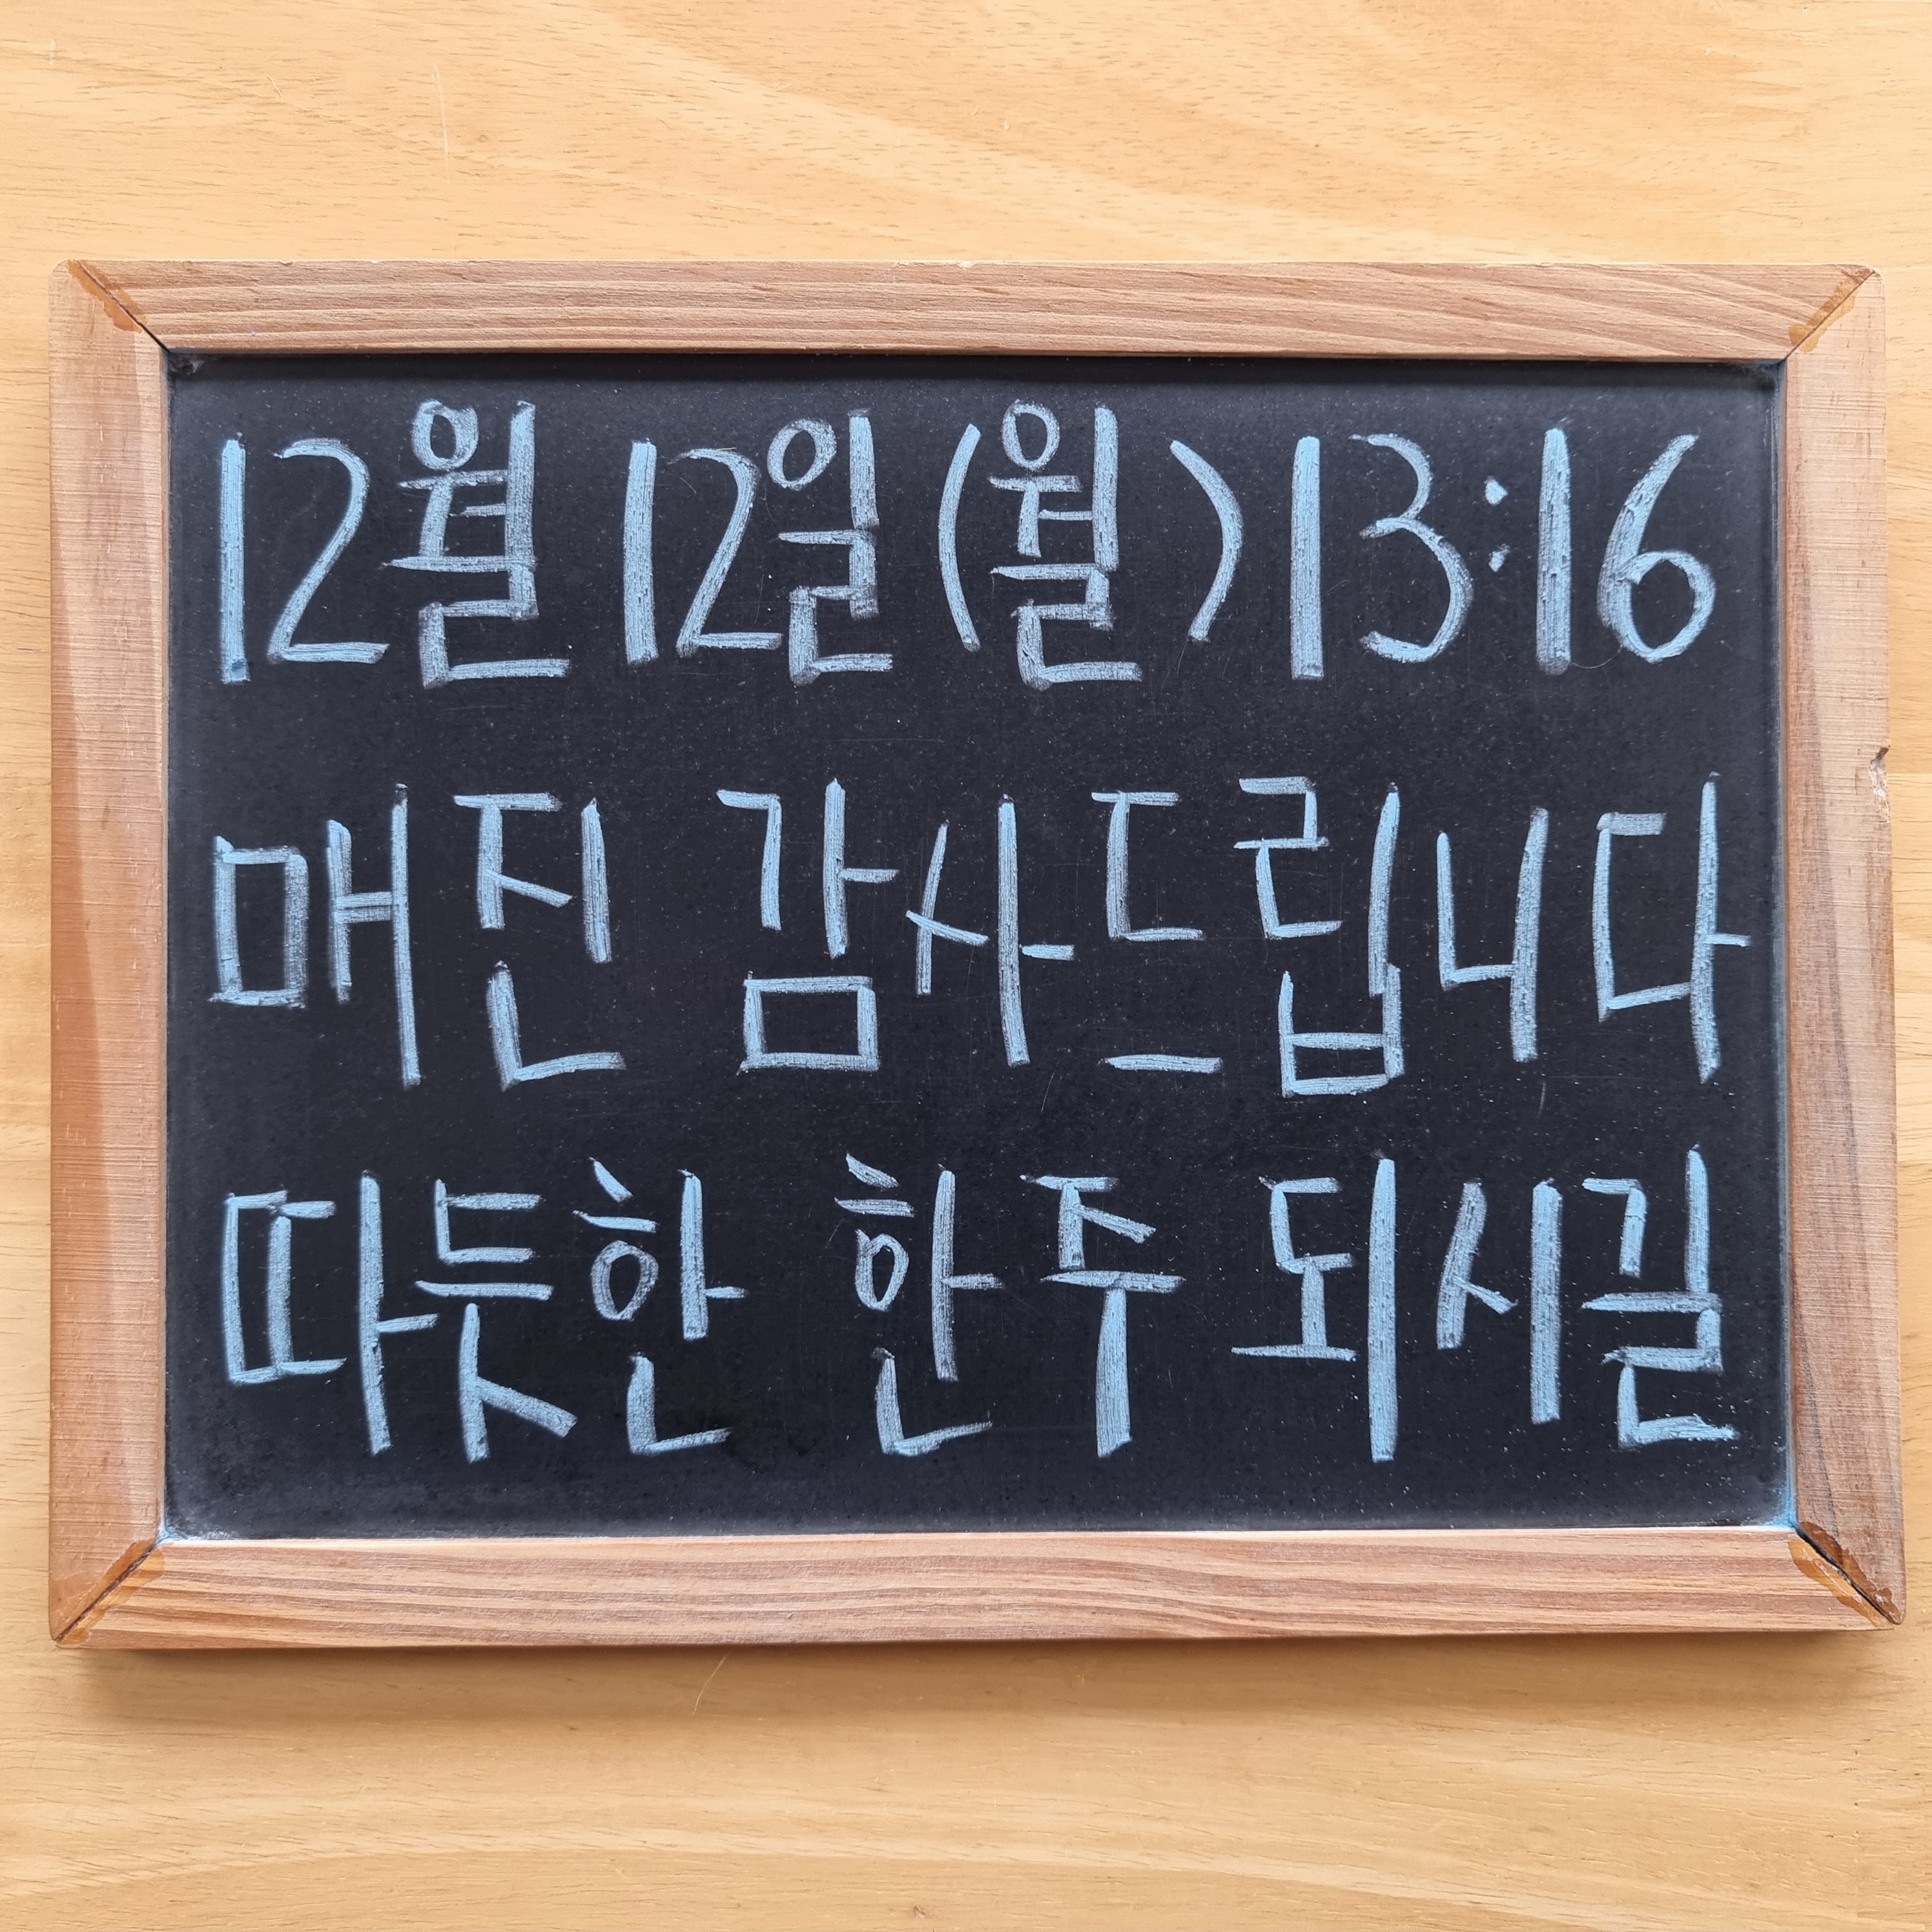 12월 12일(월) 13:16
매진 감사드립니다
따듯한 한주 되시길